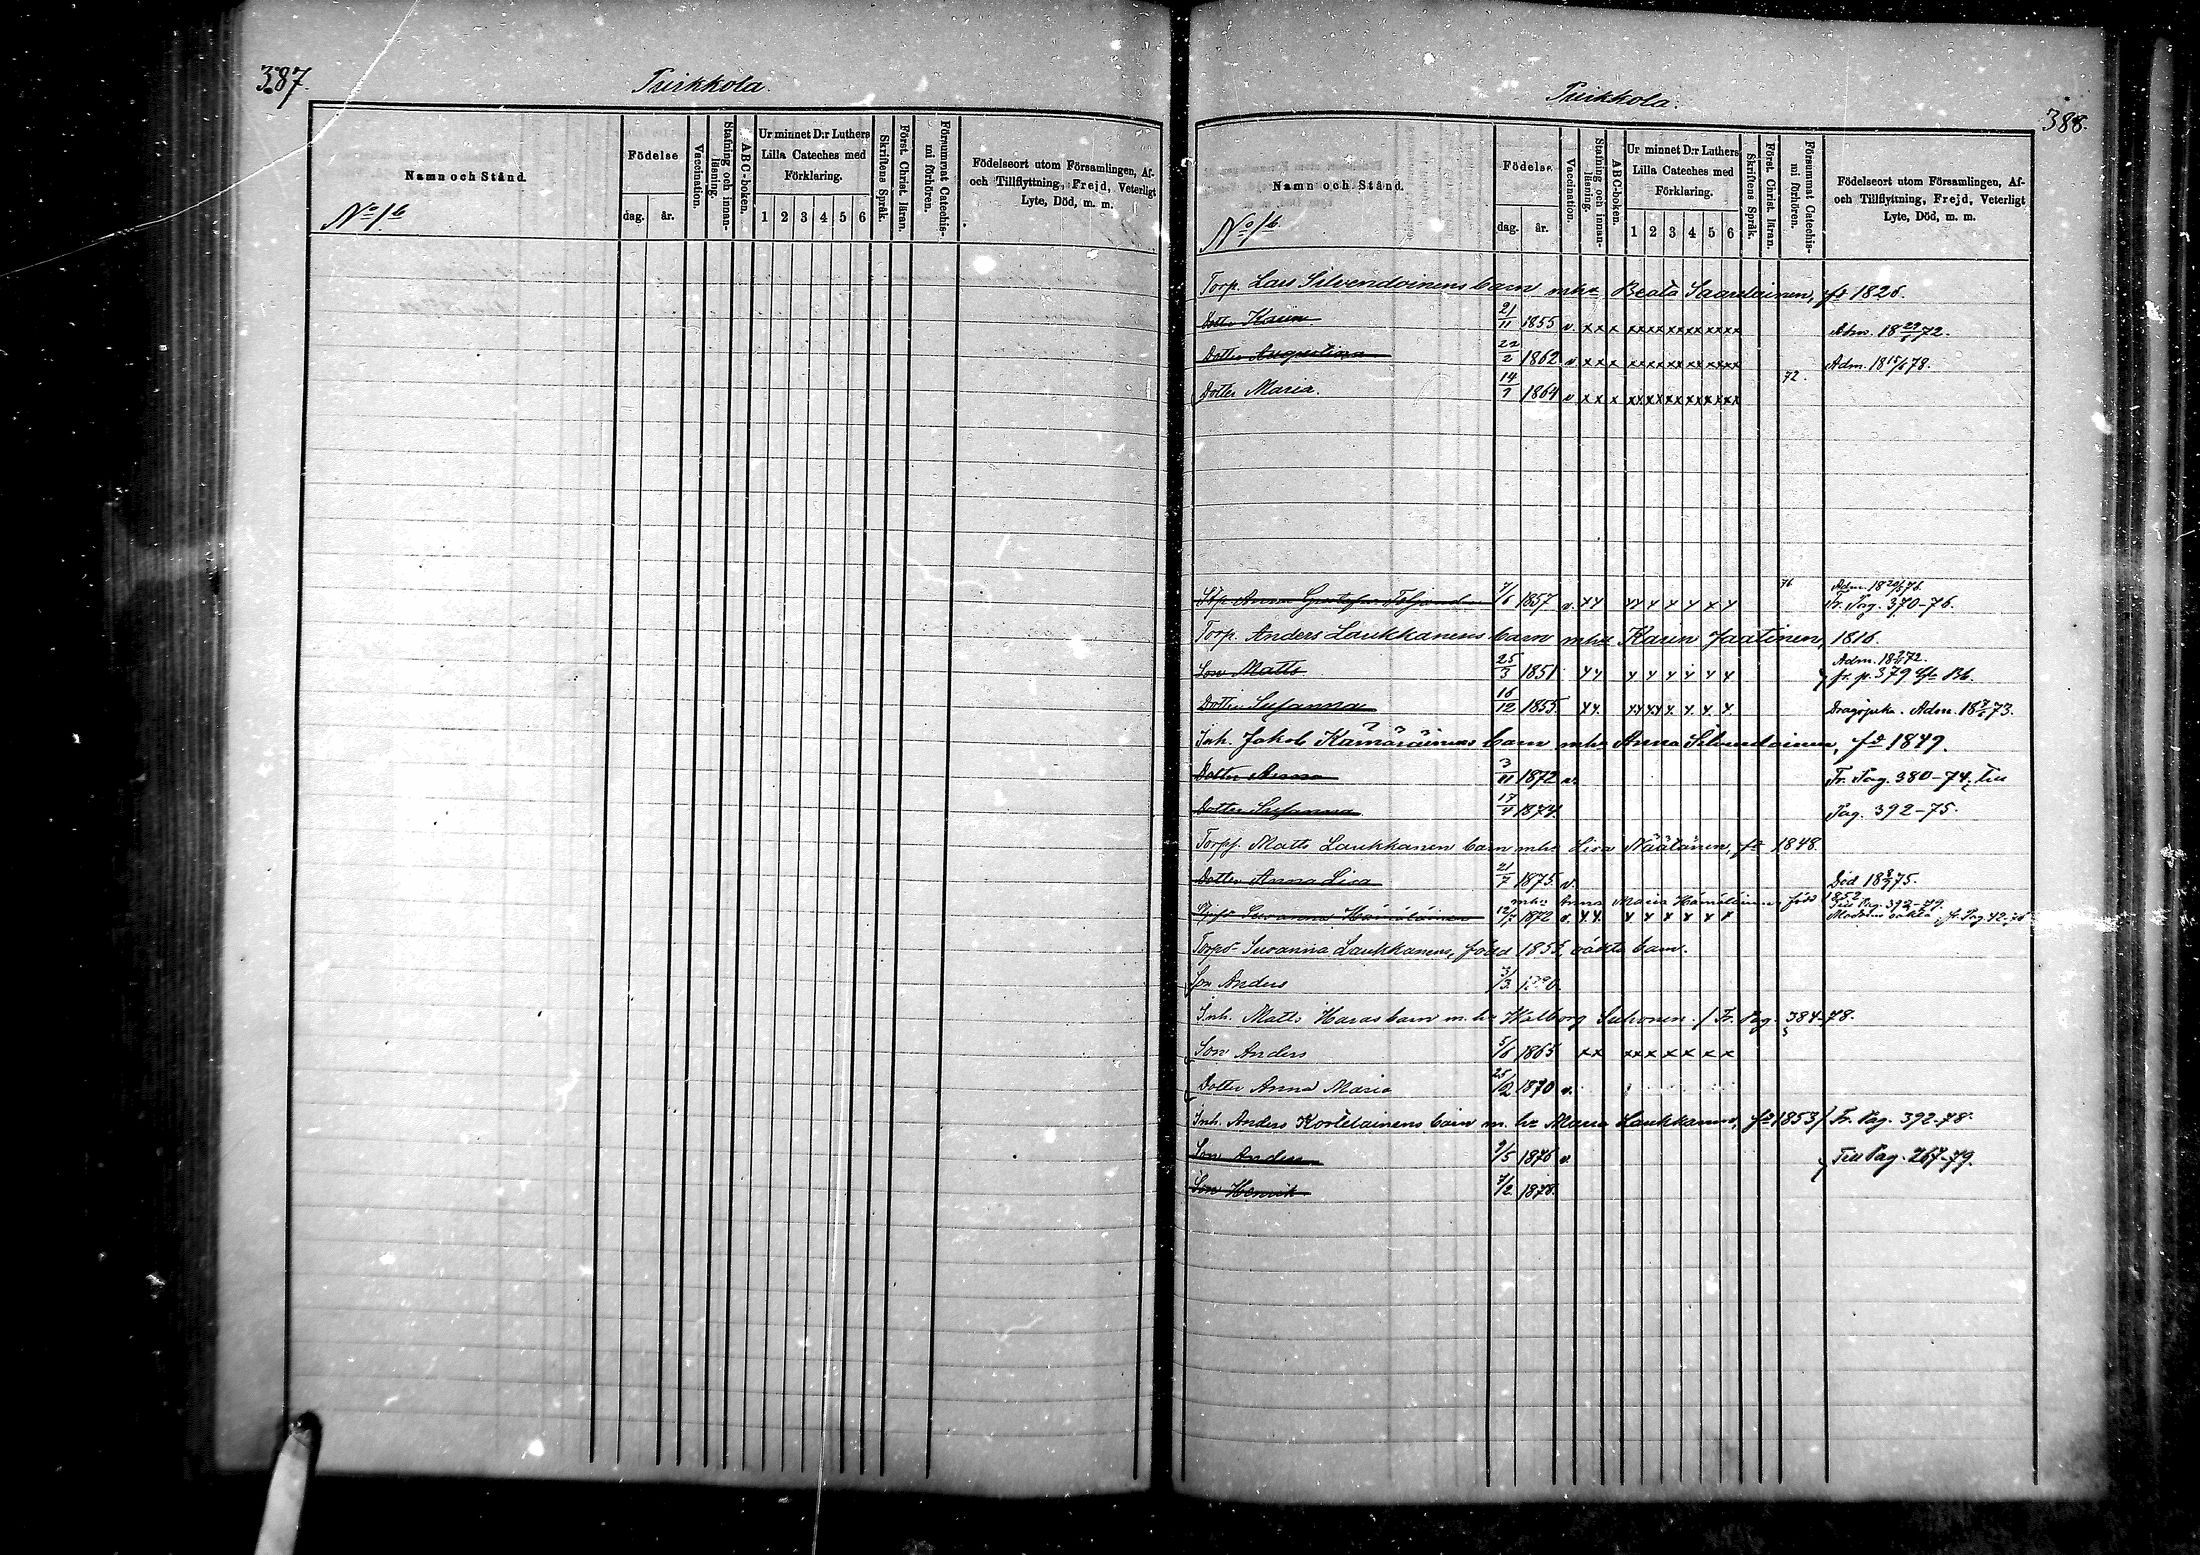 387.
Turkkola.
Namn och Stånd.
Födelse
dag. år.
Vaccination.
Stafning och innan-
läsning.
ABC-boken.
Ur minnet D:r Luthers
Lilla Cateches med
Förklaring.
1 2 3 4 5 6
Skriftens Språk.
Först. Christ. läran.
Försummat Catechis-
mi förhören.
Födelseort utom Församlingen, Af-
och Tillflyttning, Frejd, Veterligt
Lyte, Död, m. m.
No 1 b
Turkkola.
388.
Namn och Stånd.
Födelse.
dag. år.
Vaccination.
Stafning och innan-
läsning.
ABC-boken.
Ur minnet D:r Luthers
Lilla Cateches med
Förklaring.
1 2 3 4 5 6
Skriftens Språk.
Först. Christ. läran.
Försummat Catechis-
mi förhören.
Födelseort utom Församlingen, Af-
och Tillflyttning, Frejd, Veterligt
Lyte, Död, m. m.
No 1 b
Torp. Lars Silvendoinens barn mhu Beata Saarelainen, fd 1826.
Dotter Karin 21/11 1855 v x x x xxxxxxxxxxxx Adm. 18 72.
Dotter Augustina 22/2 1862 v x x x xxxxxxxxxxxx Adm. 18 15/6 78.
Dotter Maria. 14/7 1864 v x x x xxxxxxxxxxxx 72.
Anna Gustafva 7/6 1857 v. x x xx x x x x x 76 Adm. 18 76.
Fr. Pag. 370-76.
Torp. Anders Laukkanens barn mhu Karin Jaatinen, 1816.
Son Matts 25/3 1851 x x x x x x x x Adm. 18 72.
fr. p. 379
Dotter Susanna 16/12 1855. x x. xx xx x. x. x. x. Adm. 18 73.
Inh. Jakob Kämäräinens barn mhu Anna Silvendoinen, fd 1849.
Dotter Anna 3/11 1872 v. Fr. Pag. 380-74, Till
Dotter Susanna 17/4 1874. Pag. 392-75.
Torpp. Matts Laukkanen barn mhu Lisa Näätänen, fd 1848.
Dotter Anna Lisa 21/7 1875. v. Död 18 75.
mhu Anna Maria Hämäläinen född 1852
Susanna Hämäläinen 1872 v. x x. x x x x x x Till Pag. 392-79.
Moderns oäkta fr. Pag. 42-76
Susanna Laukkanens, född 1855, oäkta barn.
Son Anders 3/3
Inh. Matts Haras barn m. hu Walborg Suhonen. / Fr. Pag. 384-78.
Son Anders 5/6 1865 x x xx x x x x x
Dotter Anna Maria 25/2 1870 v.
Inh. Anders Kortelainens barn m. hu Maria Laukkanen, fd 1853 / Fr. Pag. 392-78
Son Anders 2/5 1876 v. Till Pag. 267-79.
Son Henrik 7/2 1878.